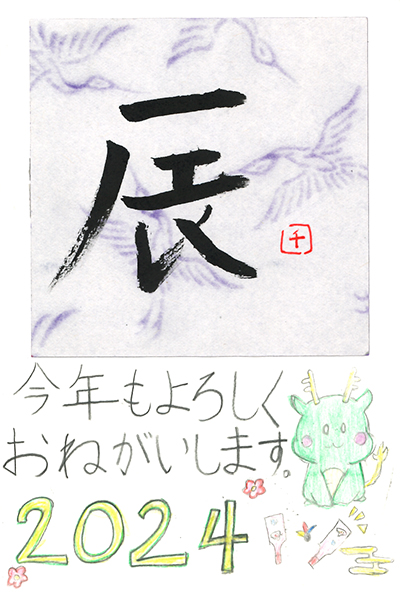 辰
千
今年もよろしく
おねがいします。
2024